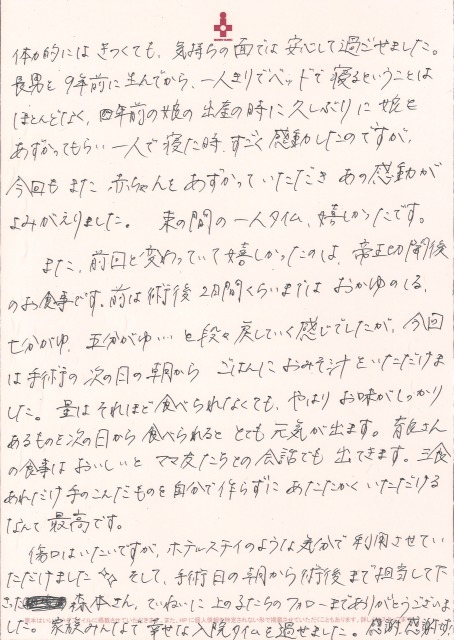 体力的にはきつくても、気持ちの面では安心して過ごせました。
長男を9年前に生んでから、一人きりでベッドで寝るということは
ほとんどなく、四年前の娘の出産の時に久しぶりに娘を
あずかってもらい一人で寝た時、すごく感動したのですが、
今回もまた赤ちゃんをあずかっていただきあの感動が
よみがえりました。 束の間の一人タイム、嬉しかったです。
また、前回と変わっていて嬉しかったのは、帝王切開後
のお食事です。前は術後2日間くらいまではおかゆのしる、
七分がゆ、五分がゆ…と段々戻していく感じでしたが、今回
は手術の次の日の朝から ごはんにおみそ汁といただけま
した。量はそれほど食べられなくても、やはりお味がしっかり
あるものを次の日から食べられるととても元気が出ます。育良さん
の食事はおいしいとママ友たちとの会話でも出てきます。三食
あれだけ手のこんだものを自分で作らずにあたたかくいただける
なんて最高です。
傷口はいたいですが、ホテルステイのような気分で利用させてい
ただけました☆ そして、手術日の朝から術後まで担当して下
さった森本さん、ていねいに上の子たちのフォローまでありがとうございま
した。家族みんなで幸せな入院タイムを過せました。感謝感謝です